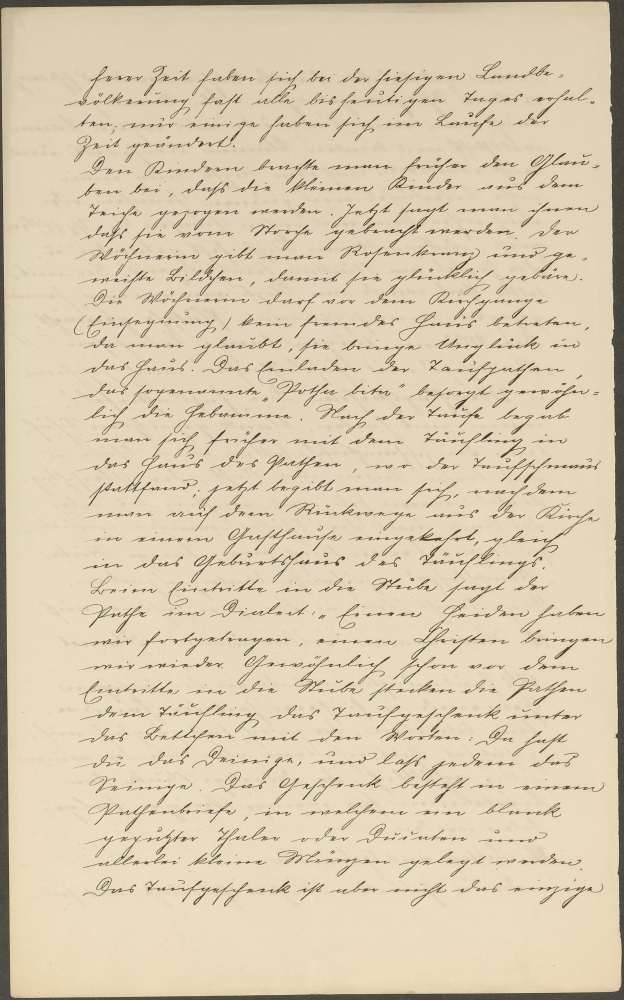 herer Zeit haben sich bei der hiesigen Landbe-
völkerung fast alle bis heutigen Tages erhal-
ten; nur einige haben sich im Laufe der
Zeit geändert.
Den Kindern brachte man früher den Glau-
ben bei, daß die kleinen Kinder aus dem
Teiche gezogen werden. Jetzt sagt man ihnen
daß sie vom Storche gebracht werden. Der
Wöchnerin gibt man Rosenkranz und ge-
weihte Bildchen, damit sie glücklich gebäre.
Die Wöchnerin darf vor dem Kirchgange
(Einsegnung) kein fremdes Haus betreten,
da man glaubt, sie bringe Unglück in
das Haus. Das Einladen der Taufpathen,
das sogenannte "Potha bita" besorgt gewöhn-
lich die Hebamme. Nach der Taufe begab
man sich früher mit dem Täufling in
das Haus des Pathen, wo der Taufschmaus
stattfand; jetzt begibt man sich, nachdem
man auf dem Rückwege aus der Kirche
in einem Gasthause eingekehrt, gleich
in das Geburtshaus des Täuflings.
Beim Eintritte in die Stube sagt der
Pathe im Dialect: "Einen Heiden haben
wir fortgetragen, einen Christen bringen
wir wieder. Gewöhnlich schon vor dem
Eintritte in die Stube stecken die Pathen
dem Täufling das Taufgeschenk unter
das Bettchen mit den Worten: Da hast
du das Deinige, und laß jedem das
Seinige. Das Geschenk besteht in einem
Pathenbriefe, in welchem ein blank
geputzter Thaler oder Ducaten und
allerlei kleine Münzen gelegt werden.
Das Taufgeschenk ist aber nicht das einzige